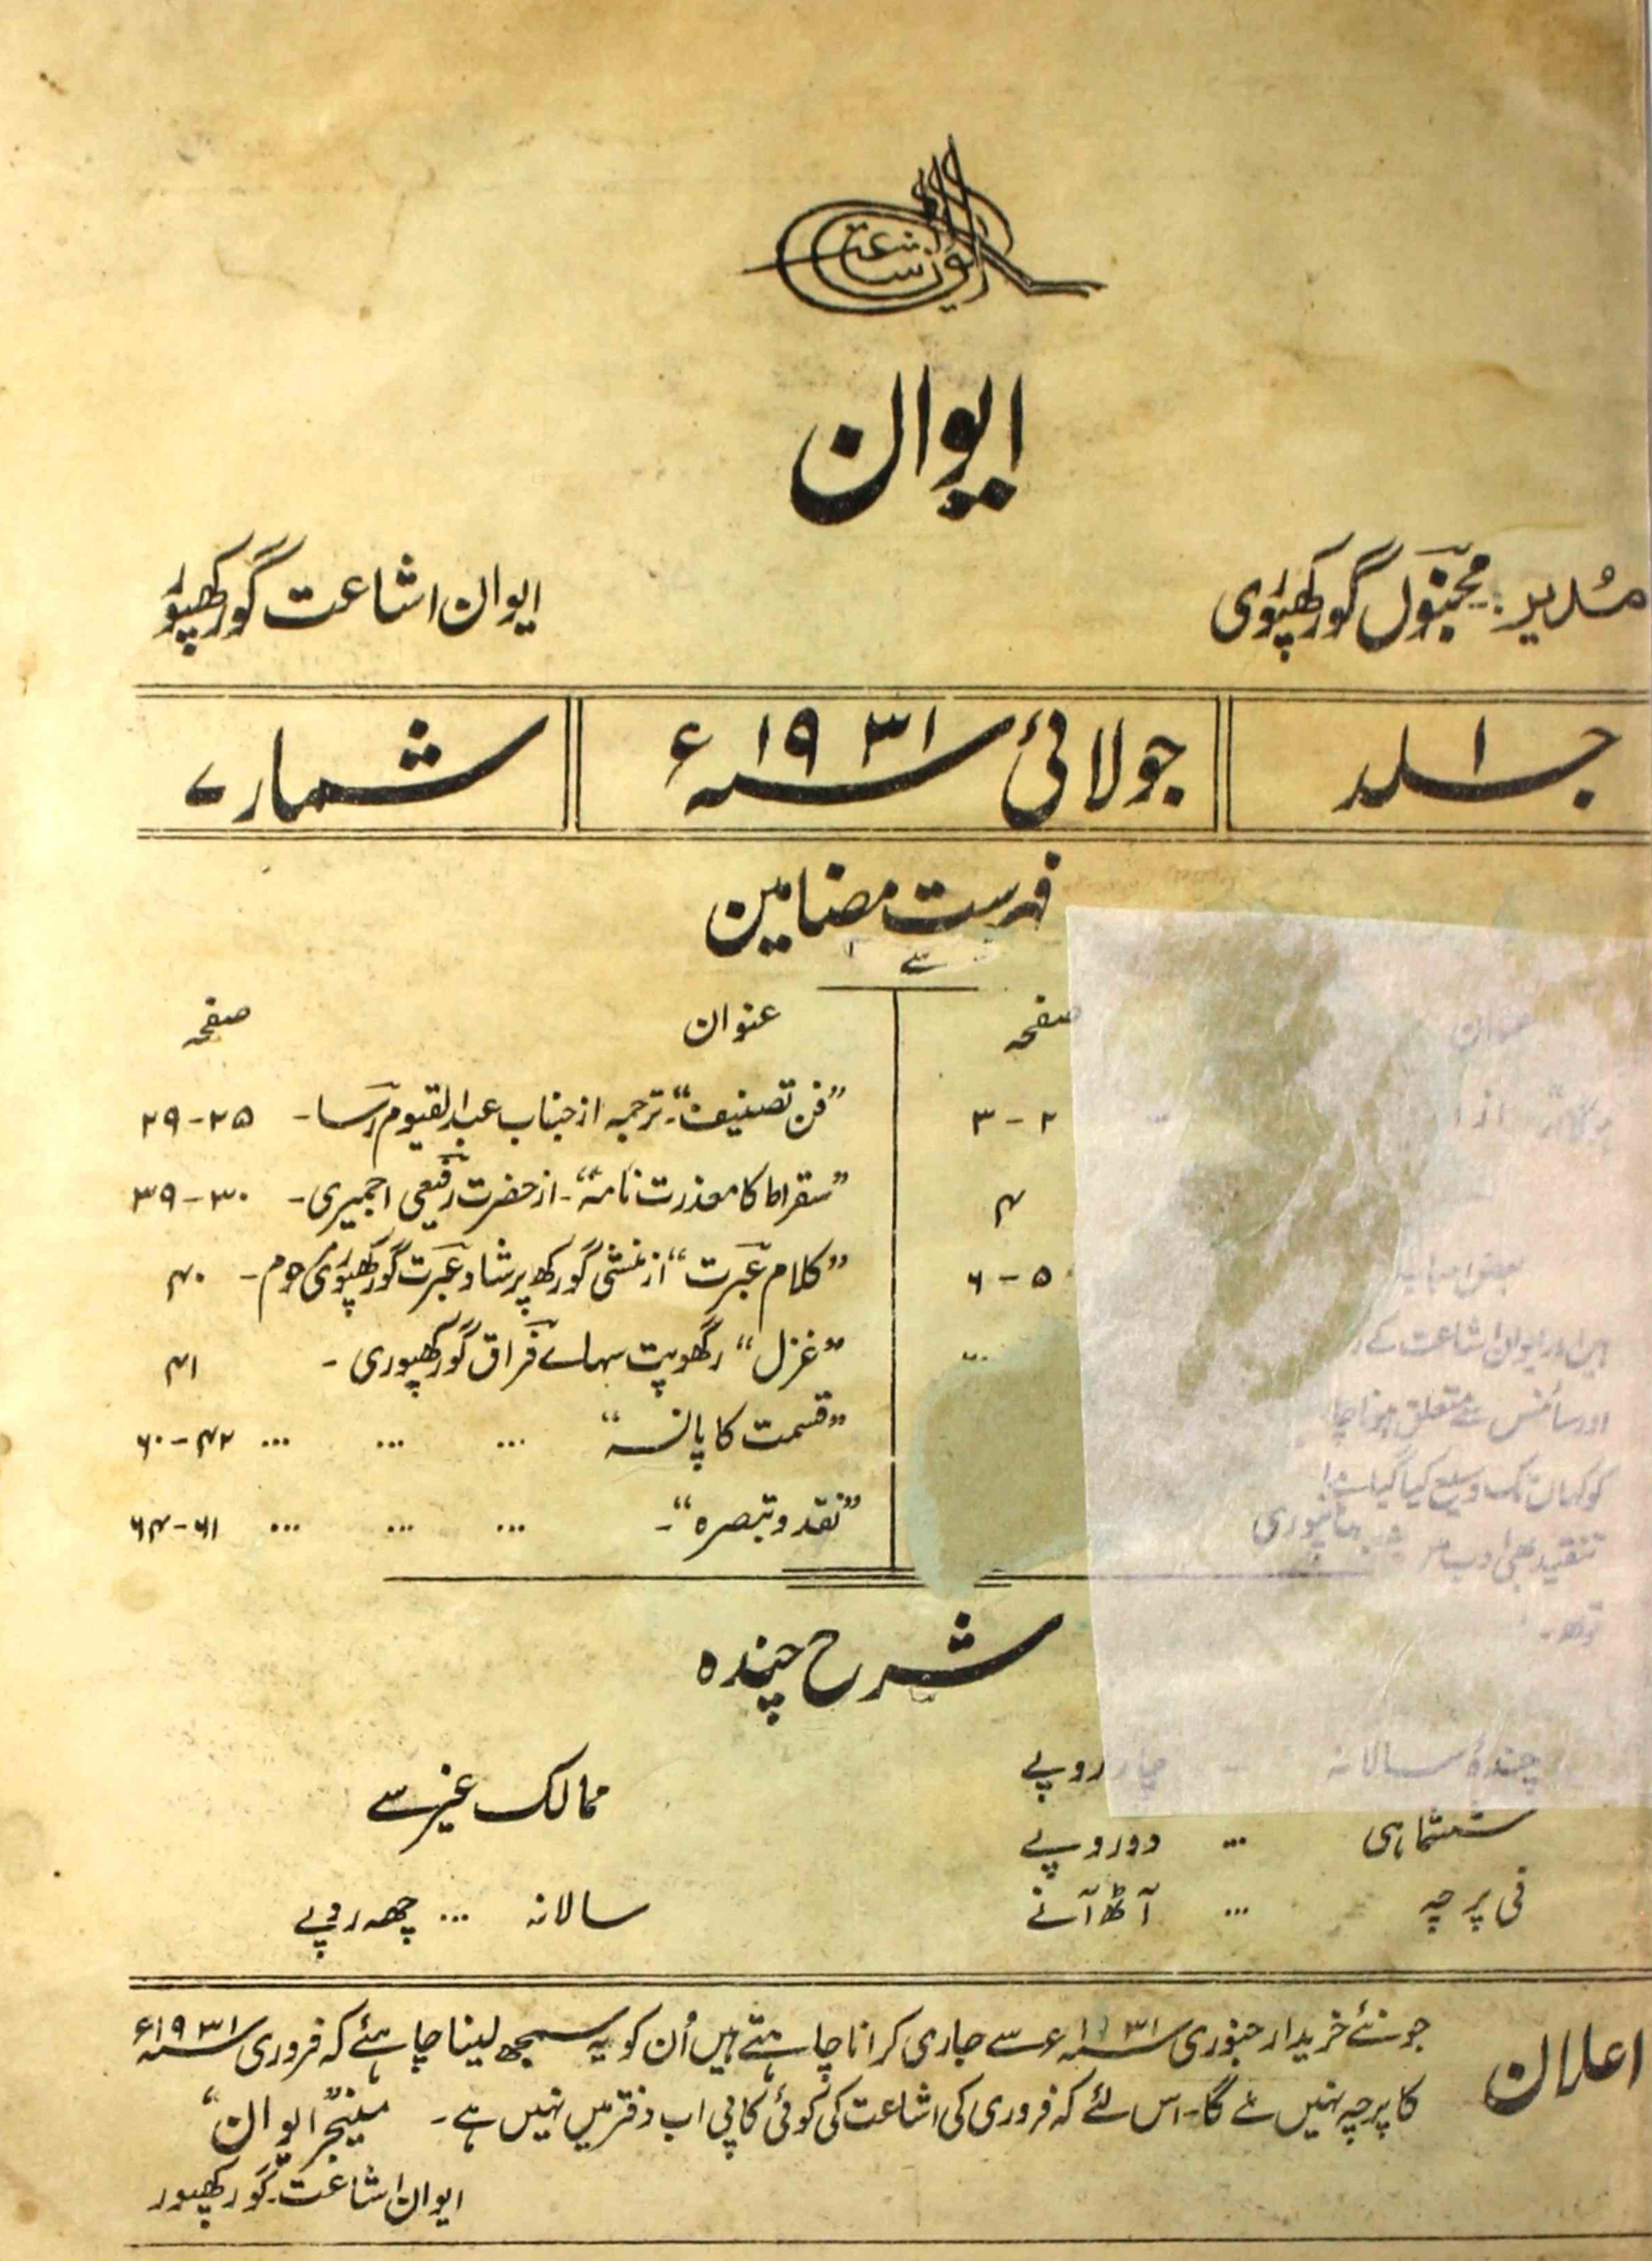 ایوان اشاعت
ایوان
مُدیر: مجنوں گورکھپوری
ایوان اشاعت گورکھپور
جلد ۱
جولائی سنہ ۱۹۳۱ء
شمار ۷
فہرست مضامین
صفحہ
۲-۳
۴
۵-۶
...
عنوان صفحہ
”فن تصنیف“۔ ترجمہ از جناب عبدالقیوم رسا۔ ۲۵-۲۹
”سقراط کا معذرت نامہ“۔ از حضرت رفیعی اجمیری۔ ۳۰-۳۹
”کلام عبرت“ از منشی گورکھ پرشاد عبرت گورکھپوری مرحوم۔ ۴۰
”غزل“ رگھوپت سہائے فراق گورکھپوری۔ ۴۱
”قسمت کا پانسہ“ ... ... ... ۴۲-۶۰
”نقد و تبصرہ“۔ ... ... ... ۶۱-۶۴
ہیں اور ایوان اشاعت کے
اور سائنس سے متعلق ہونا چا
کو کہاں تک وسیع کیا گیا ہے!
تنقید بھی ادب
شرح چندہ
چندہ سالانہ ... چار روپے
ششماہی ... دو روپے
فی پرچہ ... آٹھ آنے
ممالک غیر سے
سالانہ ... چھہ روپے
اعلان
جو نئے خریدار جنوری سنہ ۱۹۳۱ء سے جاری کرانا چاہتے ہیں اُن کو یہ سمجھ لینا چاہئے کہ فروری سنہ ۱۹۳۱ء
کا پرچہ نہیں ملے گا۔ اس لئے کہ فروری کی اشاعت کی کوئی کاپی اب دفتر میں نہیں ہے۔ منیجر ”ایوان“
ایوان اشاعت۔ گورکھپور